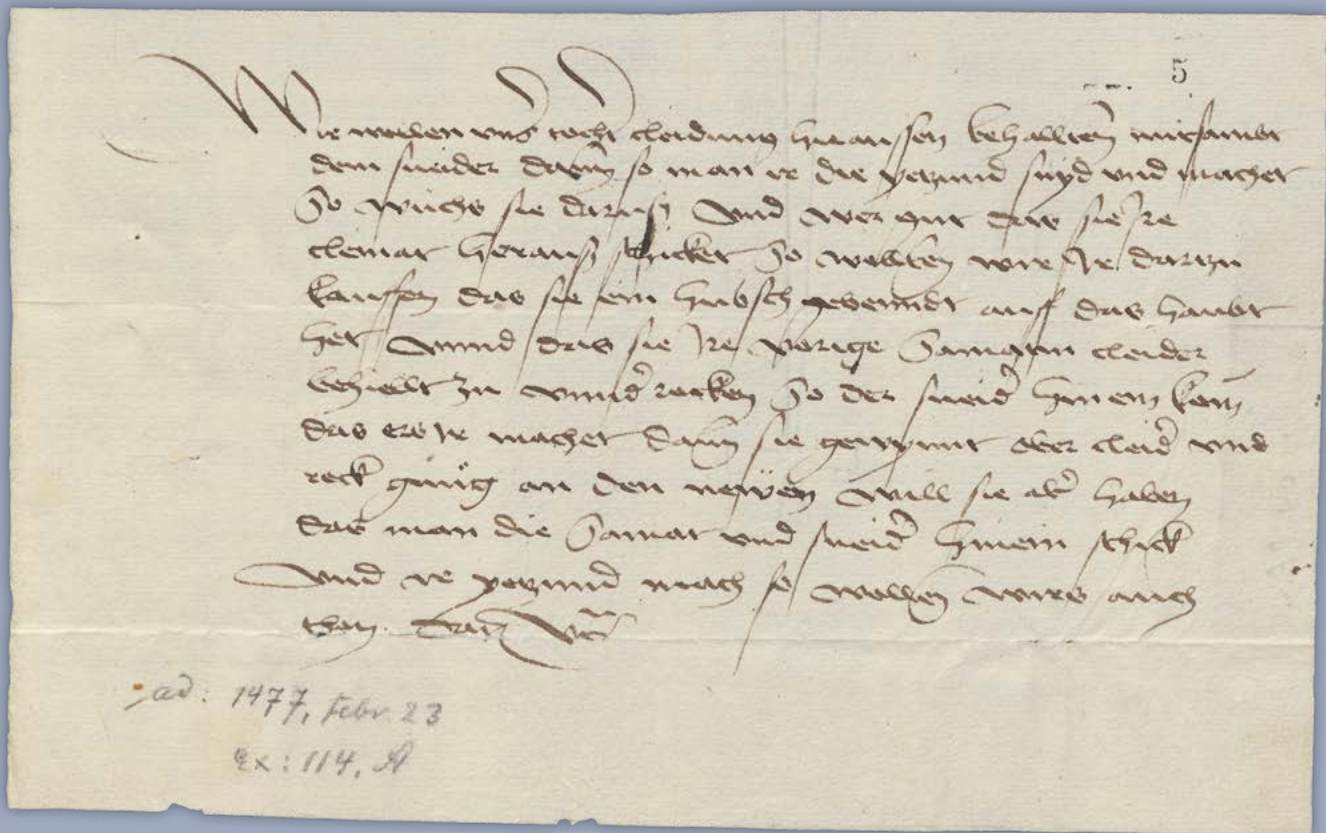 5
Wir wollen unns tocht cleidung hieaussen behallten mitsambt
dem sneider dann so man ir die yetzund snyd und machet
So wuchs sie daruß Und wer gut das sie Ire
cleinat heraus schicket So wollten wir Ir dartzu
kauffen das sie ein hubsch gebenndt auff das haubt
het Unnd das sie Ire vorige Samatin cleider
behielt zu unnd rocken So der sneid hinein kom
das ers Ir machet dann sie gewynnt ober cleid und
rock gnug an den newen Will sie aber haben
das man die Samat und sneid hinein schick
Und ir yetzund mach so wollen wirs auch
thon
ad: 1477, Febr 23
Ex: 114, A